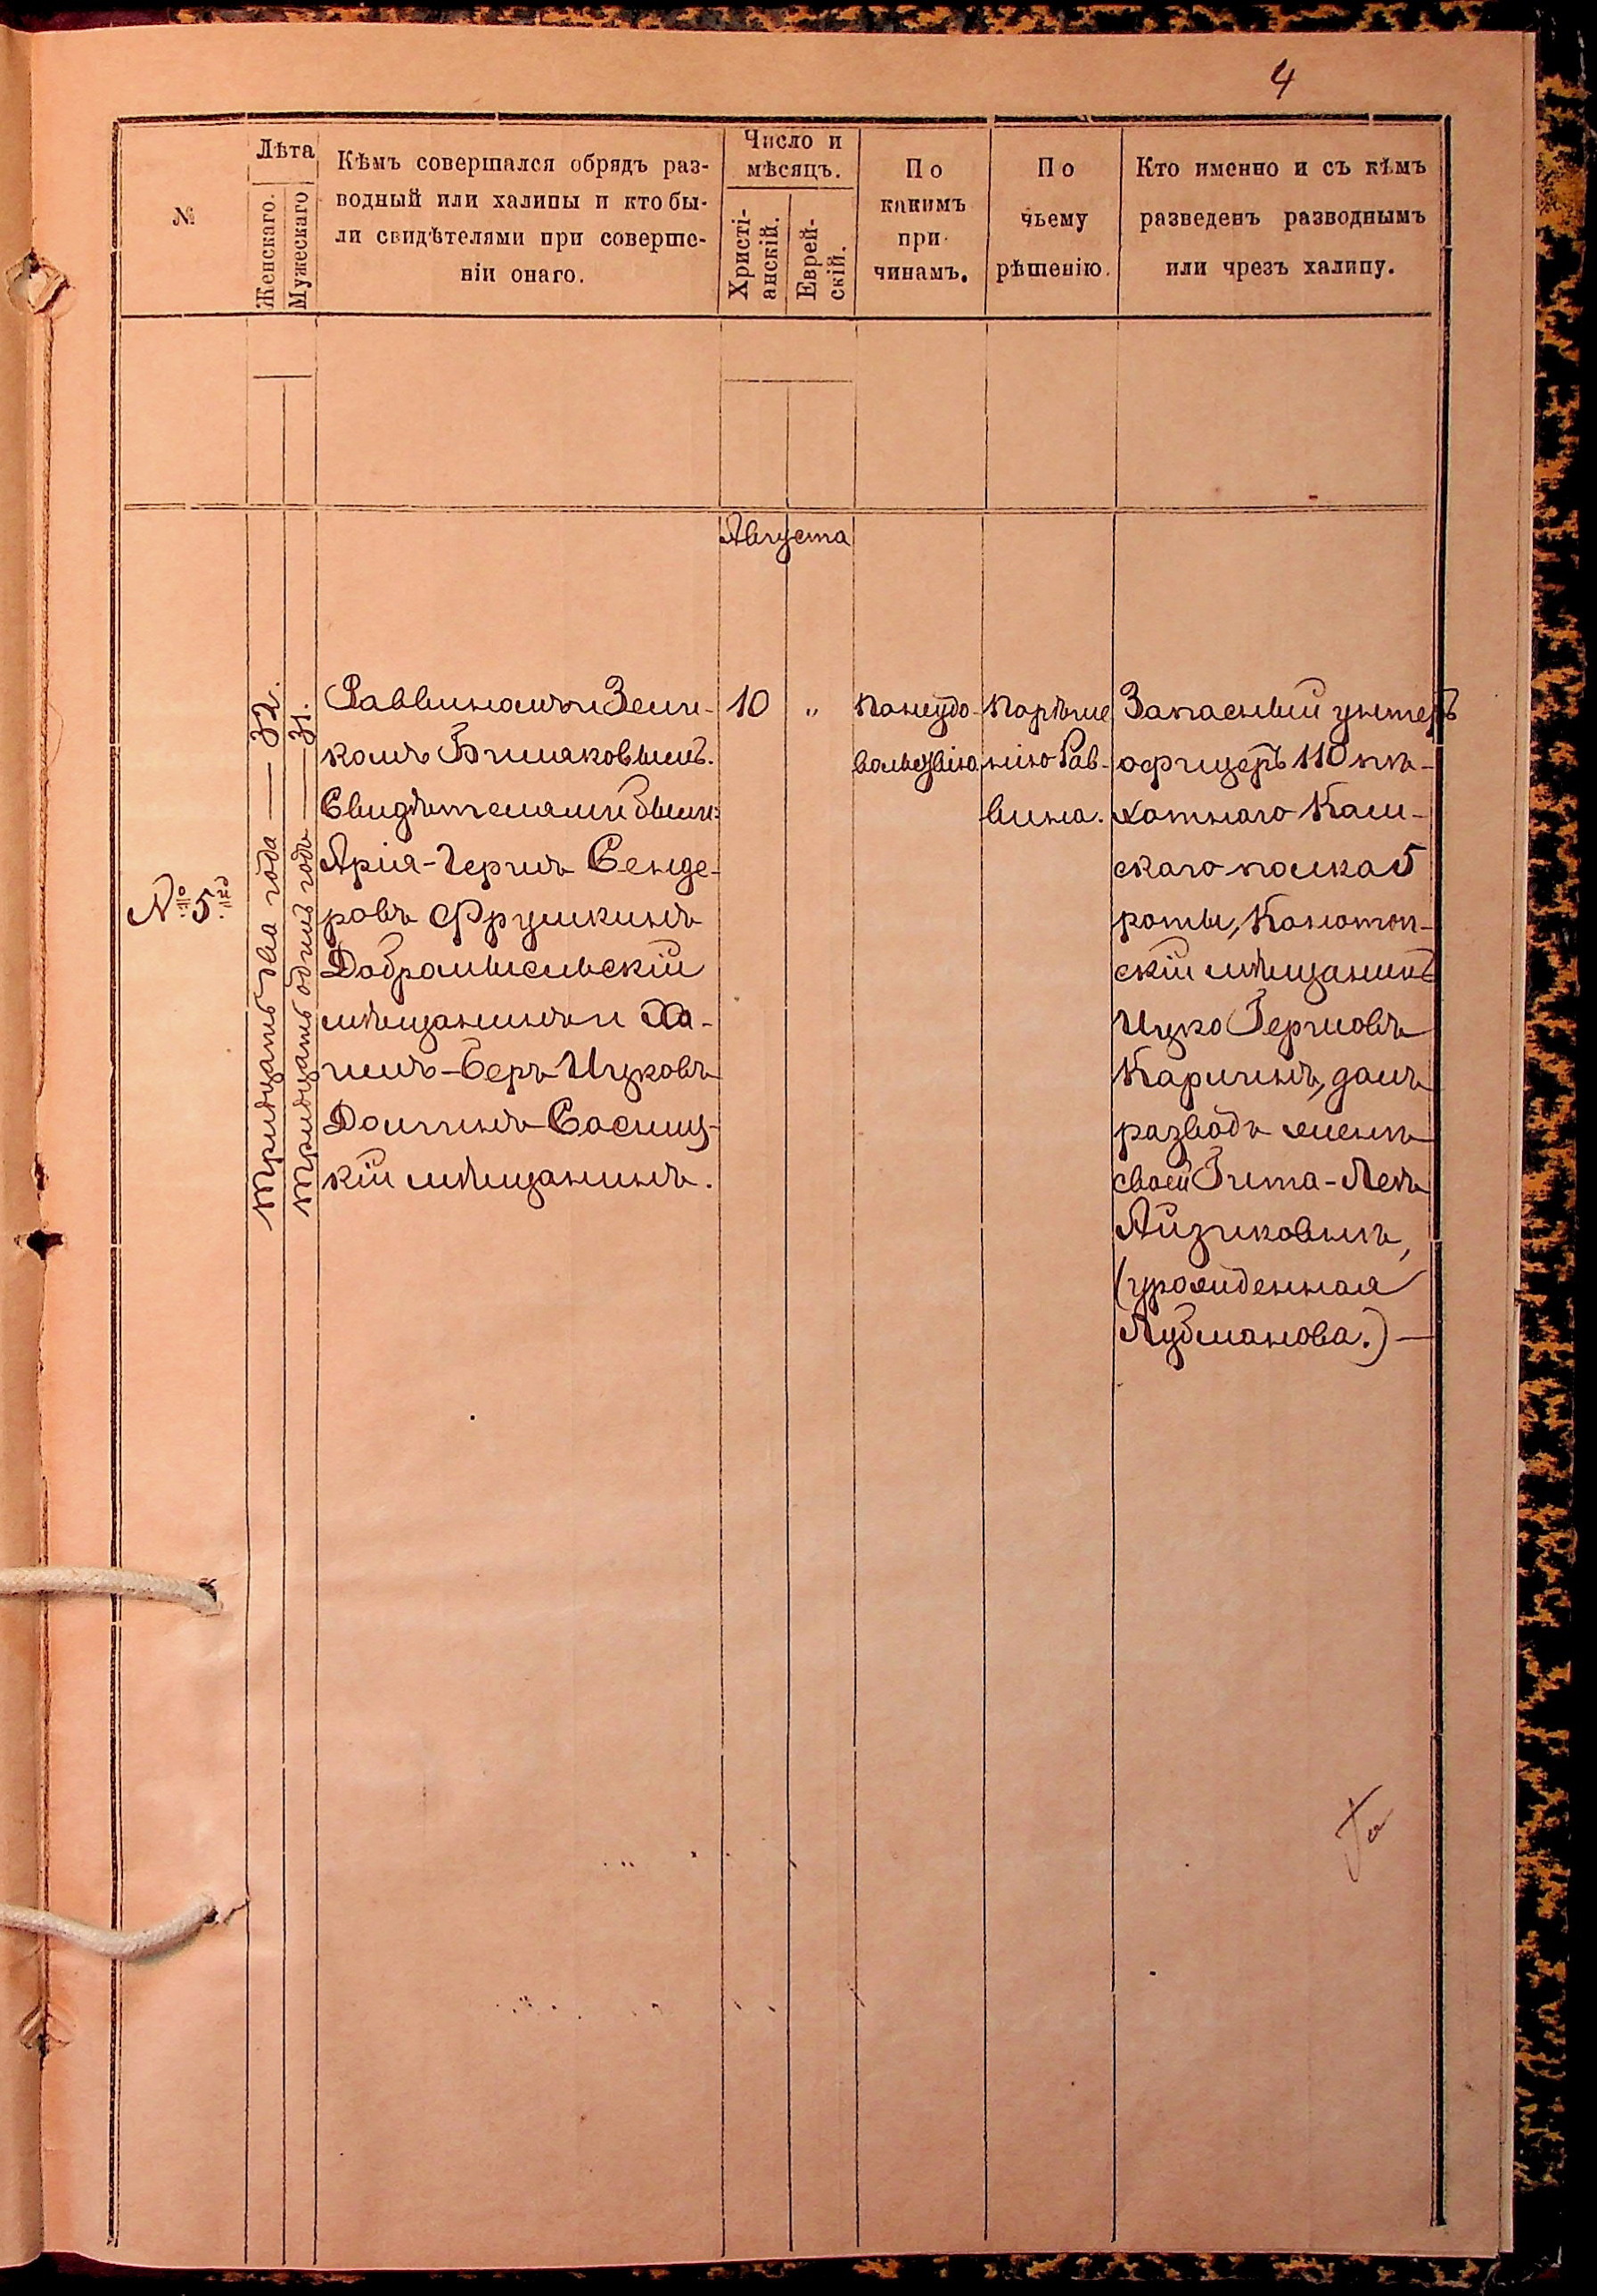 4
№
Лѣта
Женскаго.
Мужескаго
Кѣмъ совершался обрядъ раз-
водный или халицы и кто бы-
ли свидѣтелями при соверше-
ніи онаго.
Число и
мѣсяцъ.
Христі-
анскій.
Еврей-
скій.
По
какимъ
при-
чинамъ.
По
чьему
рѣшенію.
Кто именно и съ кѣмъ
разведенъ разводнымъ
или чрезъ халицу.
Августа
№ 5й
Тридцать два года — 32.
Тридцать одинъ годъ — 31.
Раввиномъ Зели-
комъ
Свидѣтелями были:
Арія-Герцъ Сенде-
ровъ Фрумкинъ
Добромысльскій
мѣщанинъ и Ха-
имъ-Беръ Ицковъ
Долинъ Сосниц-
кій мѣщанинъ.
10
"
По неудо-
вольствію
По рѣше
нію Рав-
вина.
Запасный унтеръ
офицеръ 110 пѣ-
хотнаго Кам-
скаго полка 5
роты, Конотоп-
скій мѣщанинъ
Ицко Герцовъ
Каричинъ, далъ
разводъ женѣ
своей Гита-Леѣ
Айзиковнѣ,
(урожденная
Лубманова.) —